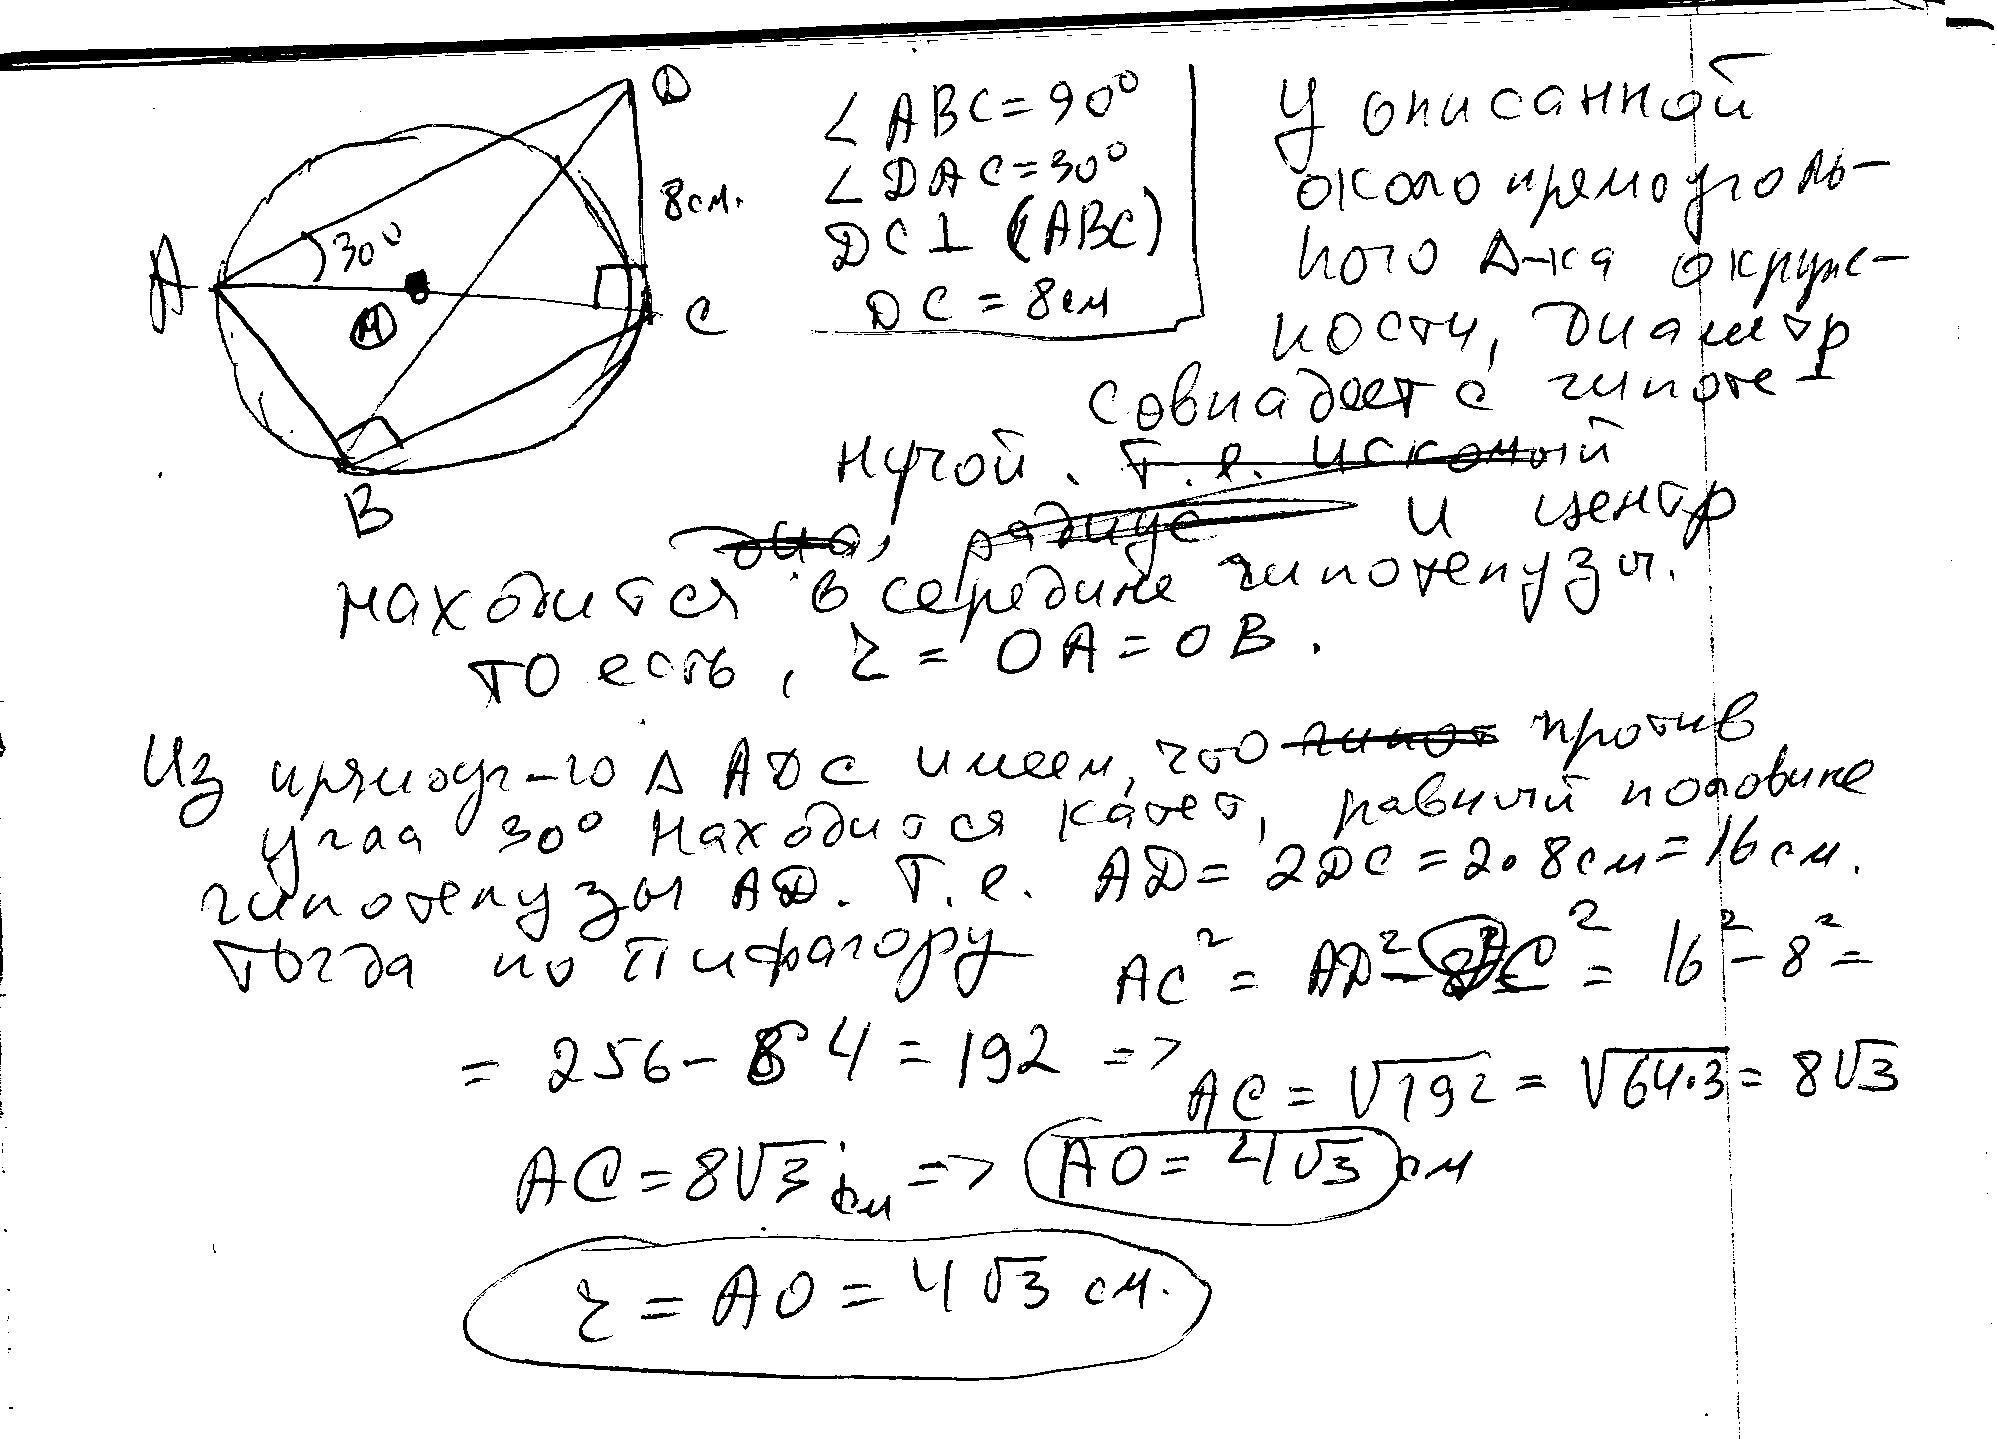 D
8см.
30°
A
M
C
B
∠ABC=90°
∠DAC=30°
DC⊥(ABC)
DC=8см
У описанной
около прямоуголь-
ного Δ-ка окруж-
ности, диаметр
совпадает с гипоте-
нузой. Т.е. искомый
радиус и центр
находится в середине гипотенузы.
то есть, r = OA = OB.
Из прямоуг-го Δ ADC имеем, что гипот против
угла 30° находится катет, равный половине
гипотенузы AD. Т.е. AD = 2DC = 2·8см = 16см.
Тогда по Пифагору AC² = AD² - DC² = 16² - 8² =
= 256 - 64 = 192 =>
AC = √192 = √64·3 = 8√3
AC = 8√3 см => AO = 4√3 см
r = AO = 4√3 см.